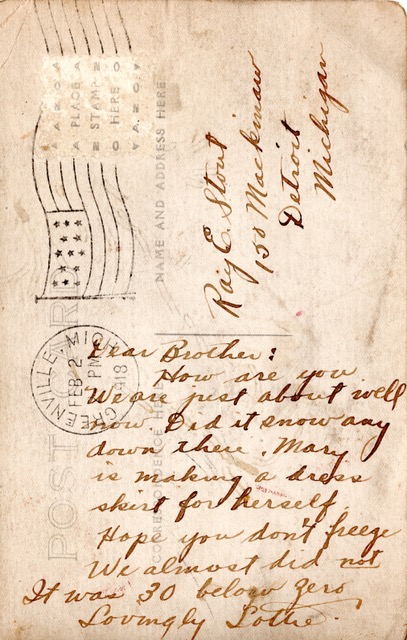 A Z O A
PLACE
STAMP
HERE
A Z O A
NAME AND ADDRESS HERE
Ray E. Stout
150 Mackinaw
Detroit
Michigan
GREENVILLE, MICH
FEB 2
PM
1918
POST CARD
CORRESPONDENCE HERE
Dear Brother:
How are you
We are just about well
now. Did it snow any
down there. Mary
is making a dress
skirt for herself.
Hope you don't freeze
We almost did not
It was 30 below zero
Lovingly Lottie.